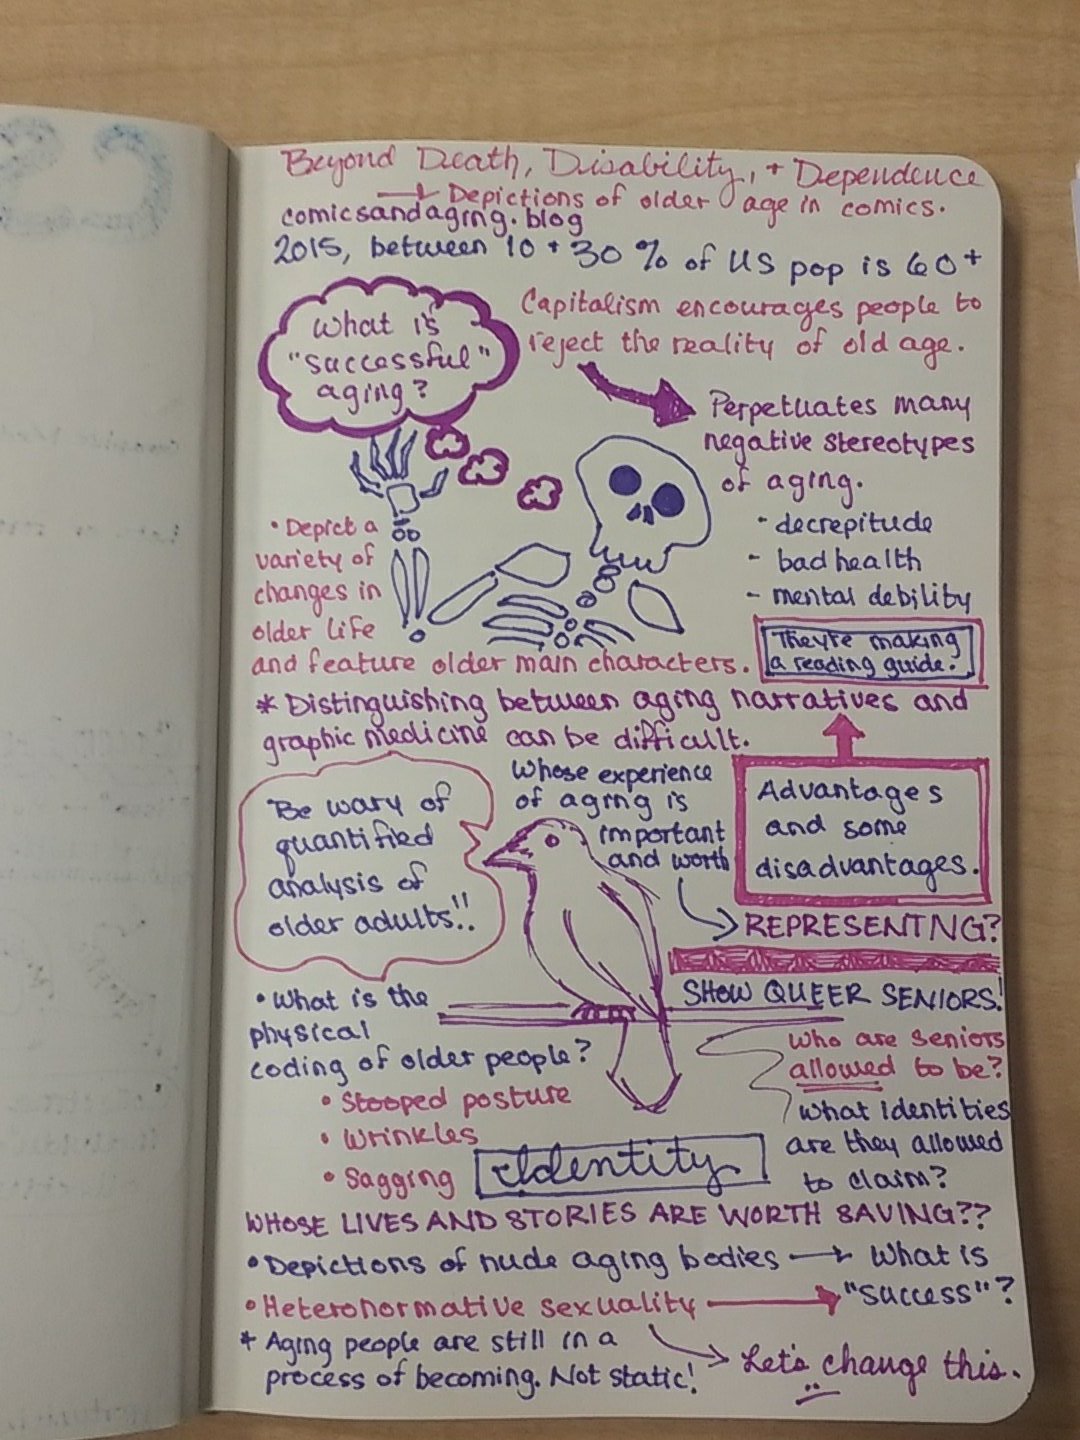 Beyond Death, Disability, + Dependence
Depictions of older age in comics.
comicsandaging.blog
2015, between 10 + 30 % of US pop is 60+
What is
"successful"
aging?
Capitalism encourages people to
reject the reality of old age.
Perpetuates many
negative stereotypes
of aging.
- decrepitude
- bad health
- mental debility
• Depict a
variety of
changes in
older life
and feature older main characters.
They're making
a reading guide.
* Distinguishing between aging narratives and
graphic medicine can be difficult.
Advantages
and some
disadvantages.
Be wary of
quantified
analysis of
older adults!!
Whose experience
of aging is
important
and worth
REPRESENTING?
SHOW QUEER SENIORS!
Who are seniors
allowed to be?
What identities
are they allowed
to claim?
• What is the
physical
coding of older people?
• Stooped posture
• Wrinkles
• Sagging
Identity
WHOSE LIVES AND STORIES ARE WORTH SAVING??
• Depictions of nude aging bodies → What is
"success"?
• Heteronormative sexuality
Let's change this.
* Aging people are still in a
process of becoming. Not static!